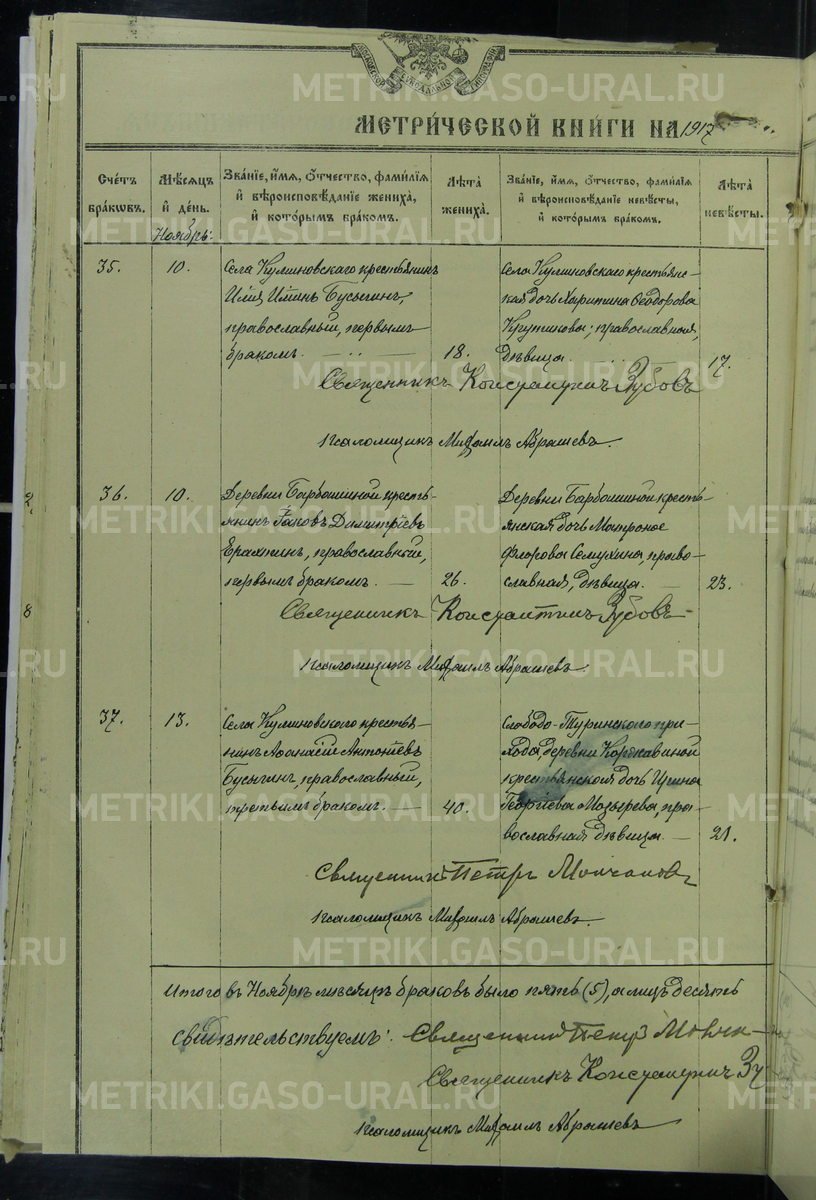 МЕТРИЧЕСКОЙ КНИГИ НА 1917
Счетъ браковъ.
Мѣсяцъ и день.
Званіе, имя, отчество, фамилія и вѣроисповѣданіе жениха, и которымъ бракомъ.
Лѣта жениха.
Званіе, имя, отчество, фамилія и вѣроисповѣданіе невѣсты, и которымъ бракомъ.
Лѣта невѣсты.
Ноябрь:
35. 10.
Села Куминовскаго крестьянинъ
Бусыгинъ,
православный, первымъ
бракомъ. 18.
Села Куминовскаго крестьянс-
кая дочь Харитина Ѳеодорова
Крутикова; православная,
дѣвица. 17.
Священникъ Константинъ Зубовъ
Псаломщикъ Михаилъ Абрашевъ.
36. 10.
Деревни Барбашиной кресть-
янинъ Іаковъ Димитріевъ
православный,
первымъ бракомъ. 26.
Деревни Барбашиной кресть-
янская дочь Матрона
Флорова Семухина, право-
славная, дѣвица. 23.
Священникъ Константинъ Зубовъ
Псаломщикъ Михаилъ Абрашевъ.
37. 13.
Села Куминовскаго кресть-
янинъ Аѳанасій Антоніевъ
Бусыгинъ, православный,
третьимъ бракомъ. 40.
Слободо-Туринскаго при-
хода, деревни Коржавиной
крестьянская дочь Ирина
Георгіева Мозырева, пра-
вославная дѣвица 21.
Священникъ Петръ
Псаломщикъ Михаилъ Абрашевъ.
Итого въ Ноябрѣ мѣсяцѣ браковъ было пять (5), а лицъ десять
Свидѣтельствуемъ: Священникъ Петръ
Священникъ Константинъ Зу
Псаломщикъ Михаилъ Абрашевъ
2
8
METRIKI.GASO-URAL.RU